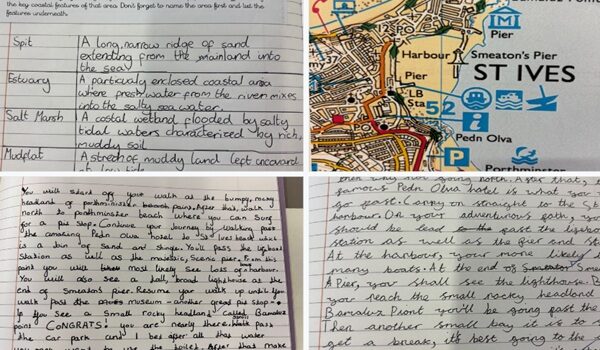 the key coastal features of that area. Don't forget to name the area first and list the
features underneath.
Spit
A long, narrow ridge of sand
extending from the mainland into
the sea
Estuary
A particully enclosed coastal area
where fresh water from the river mixes
into the salty sea water.
Salt Marsh
A costal wetland flooded by salty
tidal waters characterized by rich,
muddy soil
Mudflat
A strech of muddy land left uncoverd
at low tide
Pier
Harbour
Smeaton's Pier
ST IVES
Pier
LB
Sta
52
PO
Pedn Olva
P
Porthminster
You will start off your walk at the bumpy, rocky
headland of porthminster beach point. After that, walk
north to porthminster beach where you can surf
for a pit stop. Continue your journey by walking past
the amazing Pedn Olva hotel to St Ives beach which
is a join of sand and shingle. You'll pass the lifeboat
Station as well as the majestic, scenic pier. From this
point you will most likely see lots of harbour.
You will also see a tall, broad lighthouse at the
end of Smeatons Pier. Resume your walk up until you
walk past the museum - another great pit stop.
If you see a small rocky headland called Bamaluz
point CONGRATS! you are nearly there. walk pass
the car park and I bet after all that water
you may want to use the toilet. After that make
then why
going north. After that, t
famous Pedn Olva hotel is what you
go past. Carry on straight to the St
harbour. On your adventurous path, yo
should be lead past the lifeb
station as well as the pier and st
At the harbour, your more likely
many boats. At the end of S
A Pier, you shall see the lighthouse. B
you reach the small rocky headland
Bamaluz Piont you'll be going past the
Then another small bay it is to s
get a break, it's best going to the